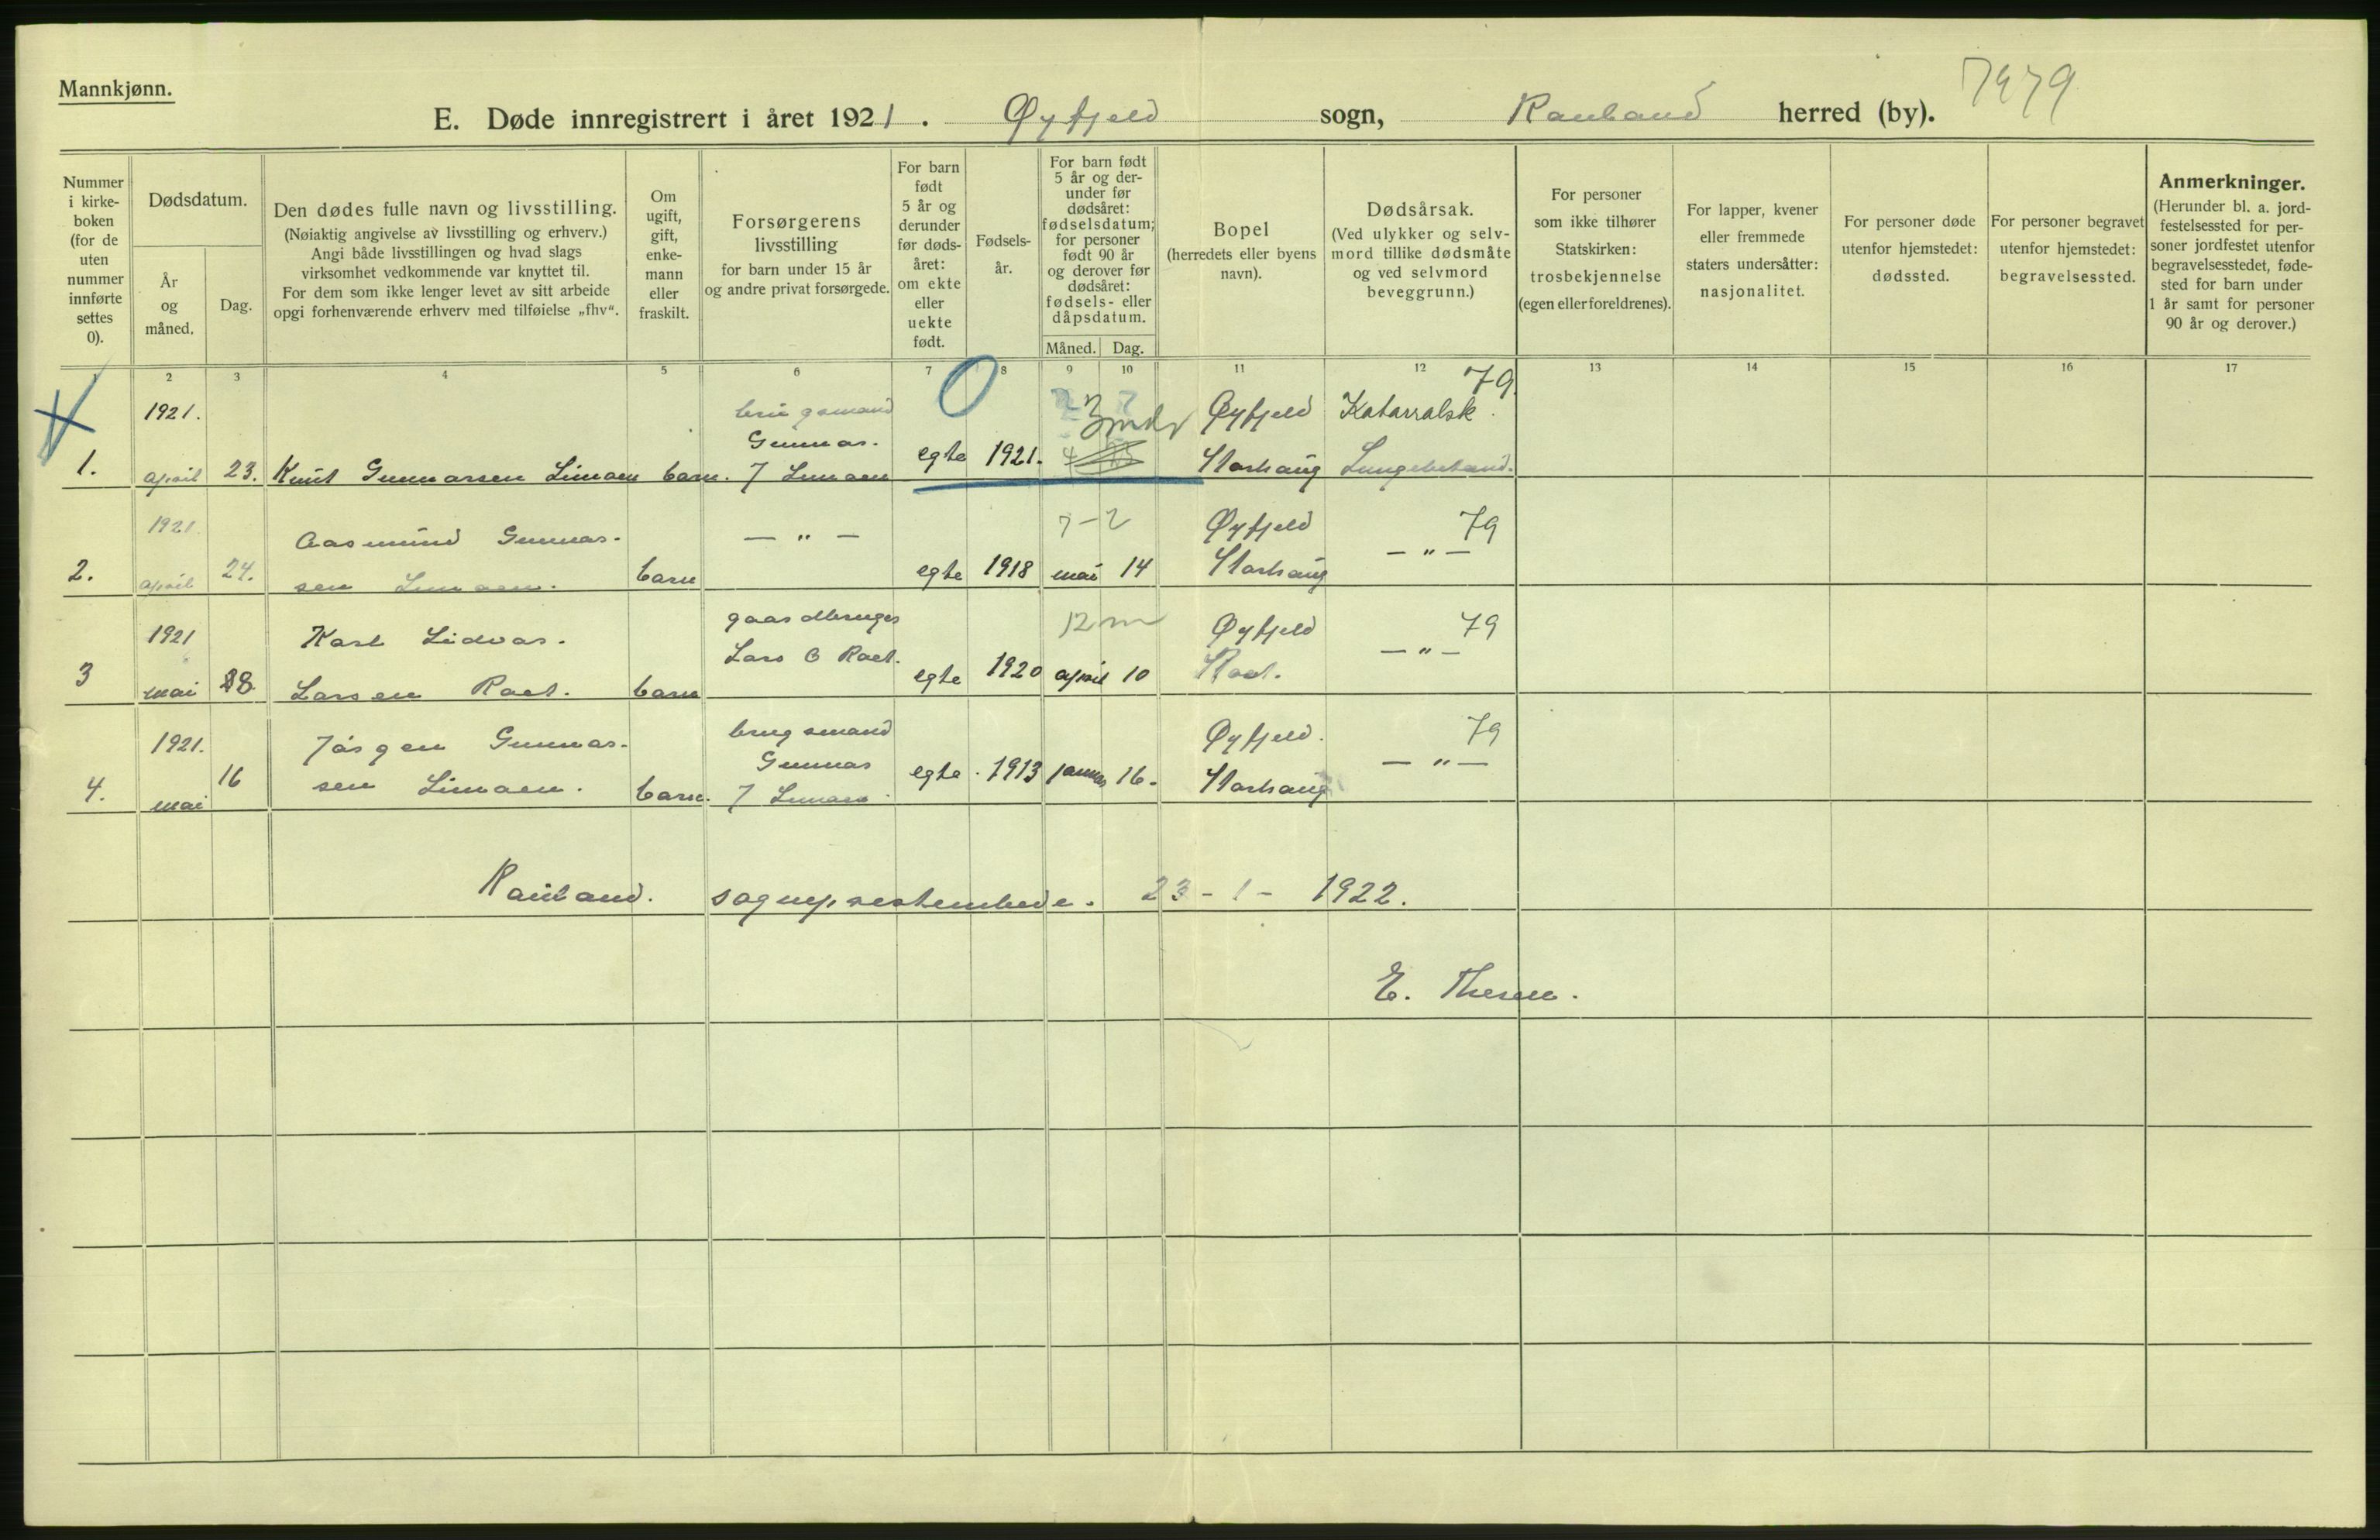 Mannkjønn.
7979
E. Døde innregistrert i året 1921. Øyfjeld sogn, Rauland herred (by).
Nummer i kirkeboken (for de uten nummer innførte settes 0).
Dødsdatum.
År og måned.
Dag.
Den dødes fulle navn og livsstilling.
(Nøiaktig angivelse av livsstilling og erhverv.)
Angi både livsstillingen og hvad slags
virksomhet vedkommende var knyttet til.
For dem som ikke lenger levet av sitt arbeide
opgi forhenværende erhverv med tilføielse „fhv“.
Om ugift, gift, enkemann eller fraskilt.
Forsørgerens
livsstilling
for barn under 15 år
og andre privat forsørgede.
For barn født 5 år og derunder før dødsåret: om ekte eller uekte født.
Fødselsår.
For barn født 5 år og derunder før dødsåret: fødselsdatum; for personer født 90 år og derover før dødsåret: fødsels- eller dåpsdatum.
Måned. Dag.
Bopel
(herredets eller byens
navn).
Dødsårsak.
(Ved ulykker og selv-
mord tillike dødsmåte
og ved selvmord
beveggrunn.)
For personer
som ikke tilhører
Statskirken:
trosbekjennelse
(egen eller foreldrenes).
For lapper, kvener
eller fremmede
staters undersåtter:
nasjonalitet.
For personer døde
utenfor hjemstedet:
dødssted.
For personer begravet
utenfor hjemstedet:
begravelsessted.
Anmerkninger.
(Herunder bl. a. jord-
festelsessted for per-
soner jordfestet utenfor
begravelsesstedet, føde-
sted for barn under
1 år samt for personer
90 år og derover.)
1 2 3 4 5 6 7 8 9 10 11 12 13 14 15 16 17
1921. brugsmand 3 mdr Øyfjeld Katarralsk 79.
Gunnar
1. april 23. Knut Gunnarsen Limoen barn. J Limoen egte 1921. Storhaug Lungebetænd.
1921 Aasmund Gunnar- — " — 7-2 Øyfjeld 79
2. april 24. sen Limoen. barn egte 1918 mai 14 Storhaug — " —
1921 Karl Lidvar. gaardbruger 12 m Øyfjeld 79
Lars O Raet. — " —
3 mai 8 Larsen Raet. barn egte 1920 april 10 Raet.
1921. Jørgen Gunnar- brugsmand Øyfjeld. 79
16 Gunnar — " —
4. mai sen Limoen. barn. J Limoen egte 1913 januar 16. Storhaug
Rauland. sogneprestembede. 23-1-1922.
E. Thesen.